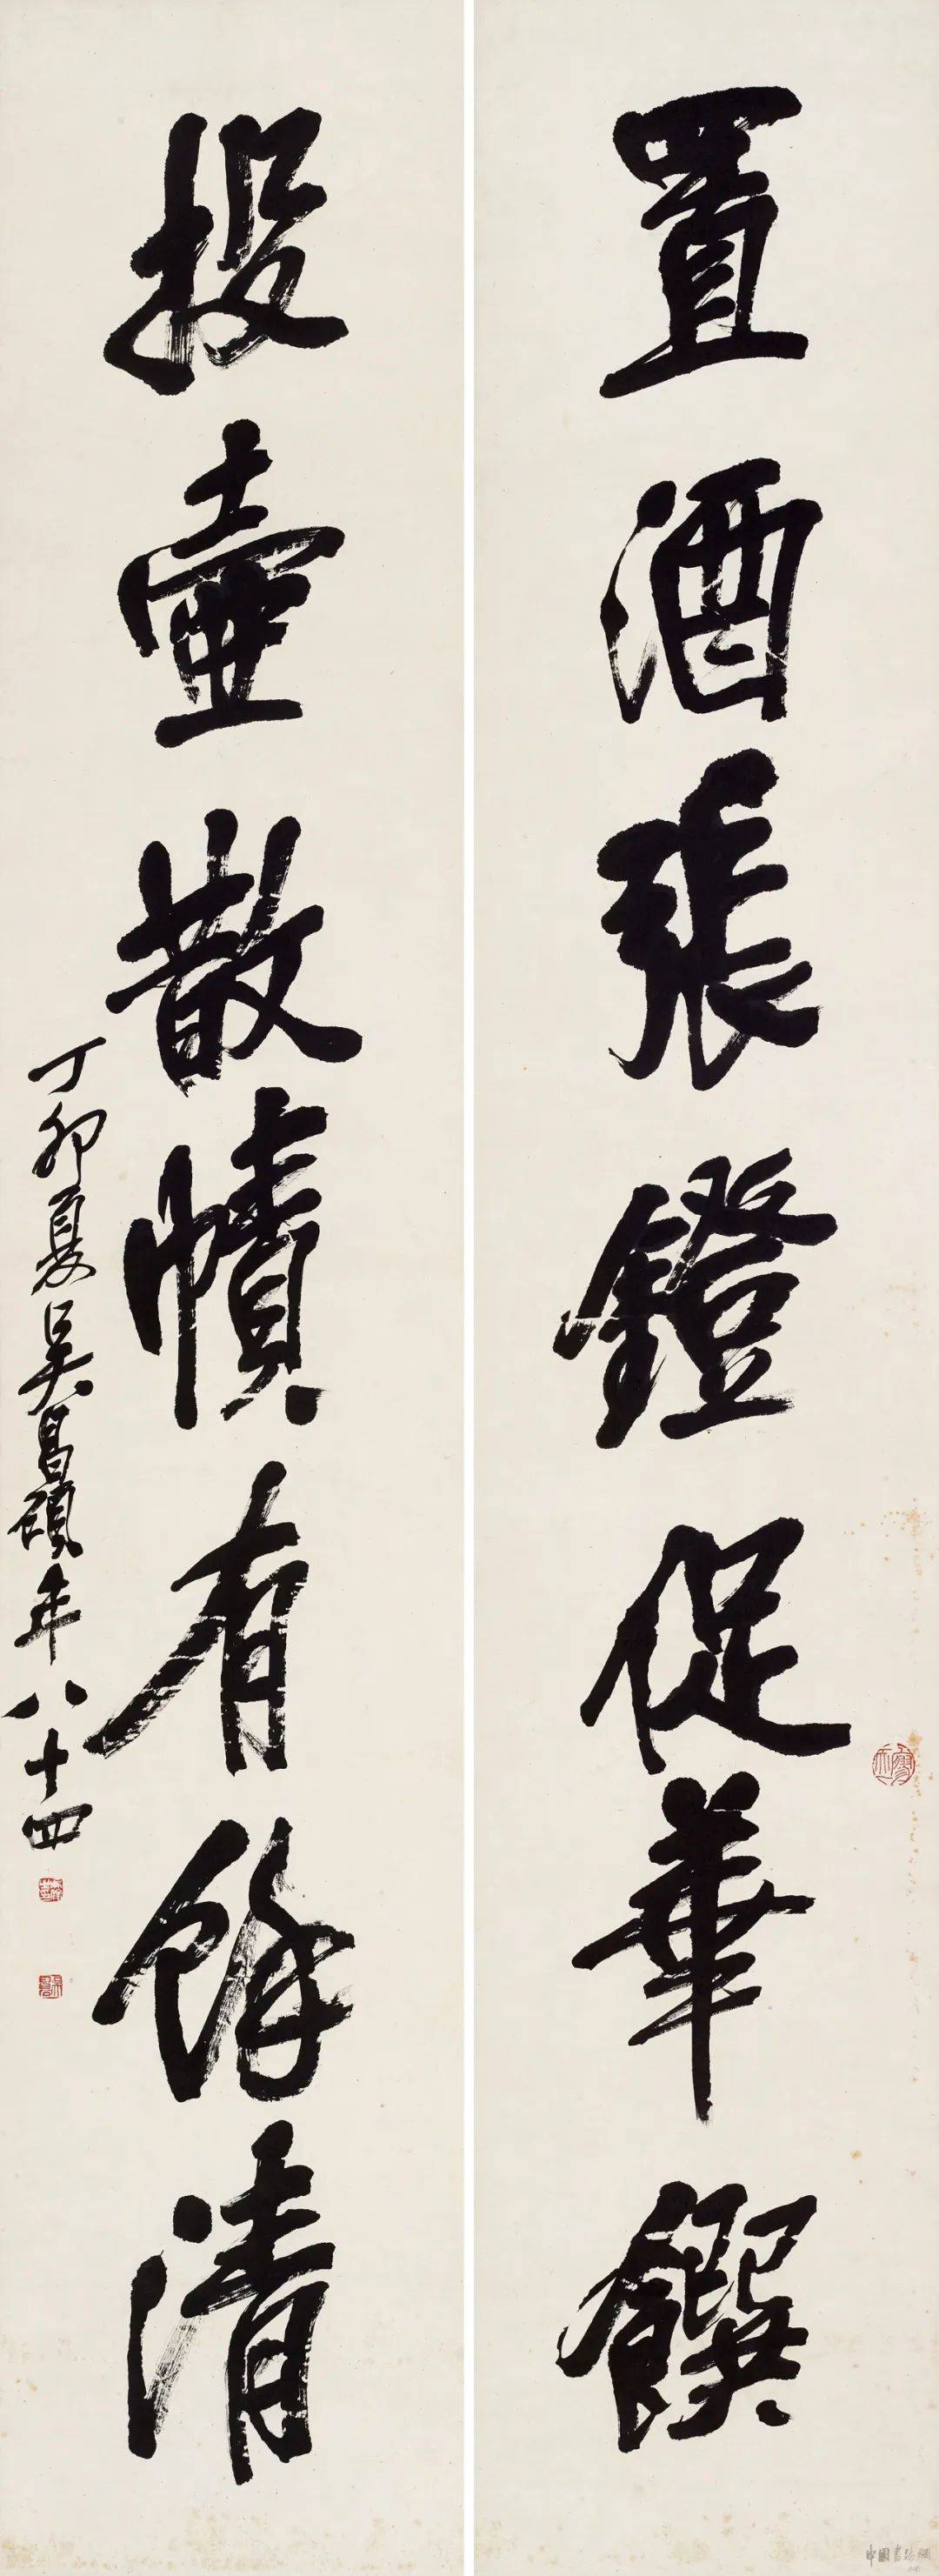 置酒張鐙促華饌
投壺散幘有餘清
丁卯夏吳昌碩年八十四
中國書法網